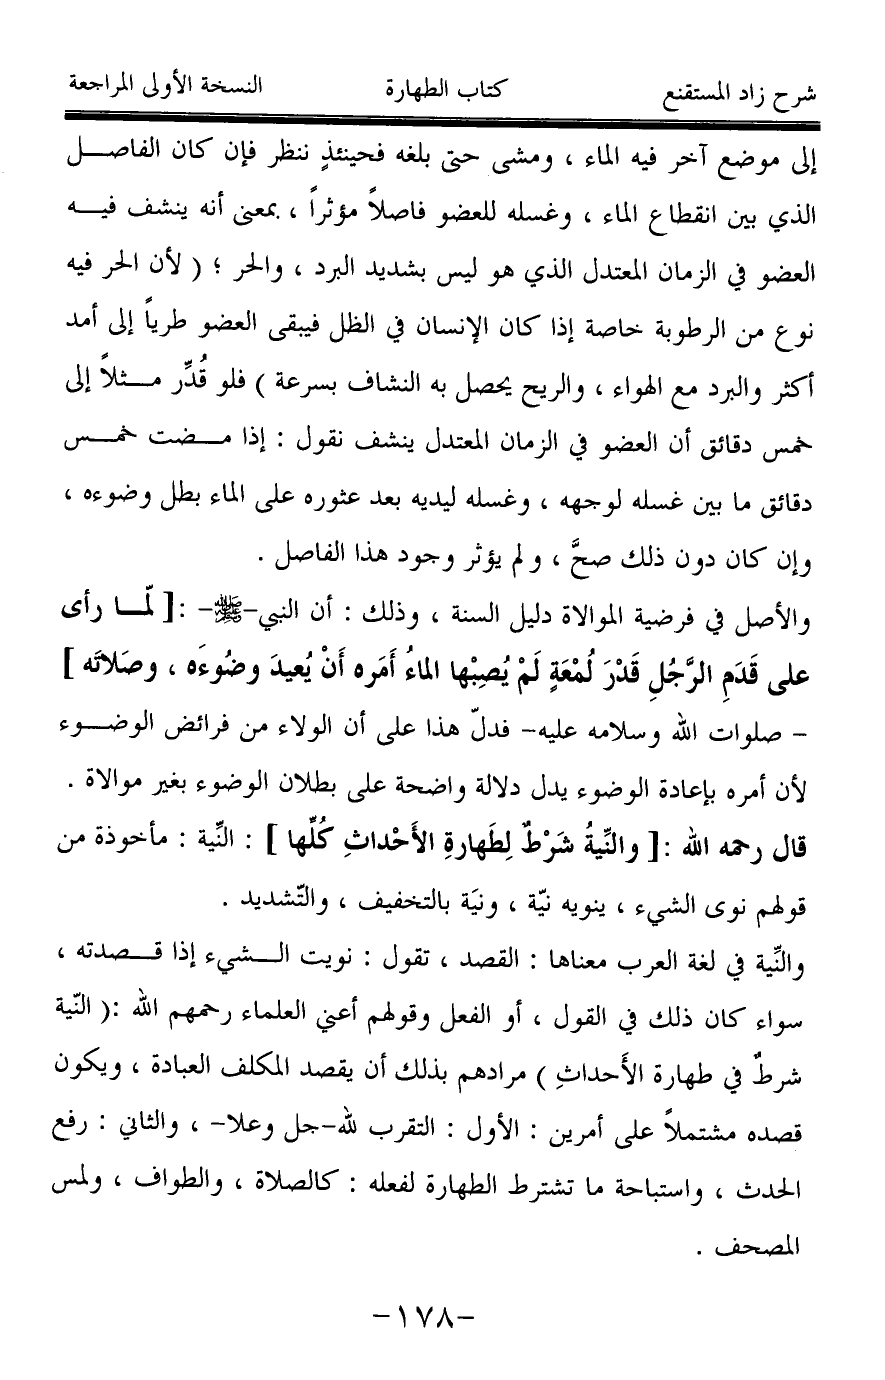 شرح زاد المستقنع كتاب الطهارة النسخة الأولى المراجعة
إلى موضع آخر فيه الماء ، ومشى حتى بلغه فحينئذٍ ننظر فإن كان الفاصل
الذي بين انقطاع الماء ، وغسله للعضو فاصلاً مؤثراً ، بمعنى أنه ينشف فيه
العضو في الزمان المعتدل الذي هو ليس بشديد البرد ، والحر ؛ ( لأن الحر فيه
نوع من الرطوبة خاصة إذا كان الإنسان في الظل فيبقى العضو طرياً إلى أمد
أكثر والبرد مع الهواء ، والريح يحصل به النشاف بسرعة ) فلو قُدِّر مثلاً إلى
خمس دقائق أن العضو في الزمان المعتدل ينشف نقول : إذا مضت خمس
دقائق ما بين غسله لوجهه ، وغسله ليديه بعد عثوره على الماء بطل وضوءه ،
وإن كان دون ذلك صحَّ ، ولم يؤثر وجود هذا الفاصل .
والأصل في فرضية الموالاة دليل السنة ، وذلك : أن النبي-ﷺ- :[ لمّا رأى
على قَدَمِ الرَّجُلِ قَدْرَ لُمْعَةٍ لَمْ يُصِبْها الماءُ أَمَره أَنْ يُعيدَ وضُوءَه ، وصَلاتَه ]
- صلوات الله وسلامه عليه- فدلّ هذا على أن الولاء من فرائض الوضوء
لأن أمره بإعادة الوضوء يدل دلالة واضحة على بطلان الوضوء بغير موالاة .
قال رحمه الله :[ والنِّيةُ شَرْطٌ لِطَهارةِ الأَحْداثِ كُلِّها ] : النِّية : مأخوذة من
قولهم نوى الشيء ، ينويه نيّة ، ونيَة بالتخفيف ، والتّشديد .
والنِّية في لغة العرب معناها : القصد ، تقول : نويت الشيء إذا قصدته ،
سواء كان ذلك في القول ، أو الفعل وقولهم أعني العلماء رحمهم الله :( النّية
شرطٌ في طهارة الأَحداثِ ) مرادهم بذلك أن يقصد المكلف العبادة ، ويكون
قصده مشتملاً على أمرين : الأول : التقرب لله-جل وعلا- ، والثاني : رفع
الحدث ، واستباحة ما تشترط الطهارة لفعله : كالصلاة ، والطواف ، ولمس
المصحف .
-١٧٨-